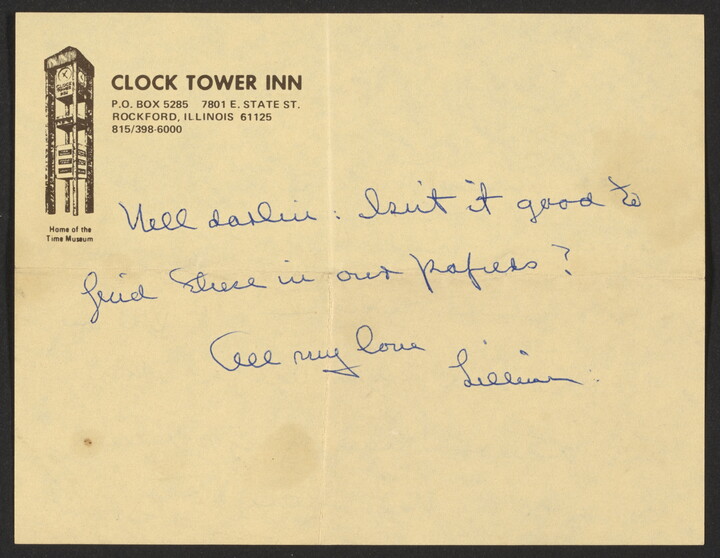 CLOCK TOWER INN
P.O. BOX 5285 7801 E. STATE ST.
ROCKFORD, ILLINOIS 61125
815/398-6000
CLOCK
TOWER
INN
Home of the
Time Museum
Nell darlin: Isn't it good to
find these in our papers?
All my love
Lillian.